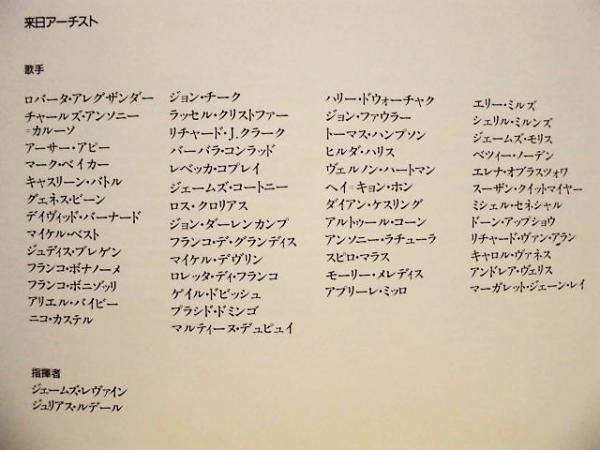 来日アーチスト
歌手
ロバータ・アレグザンダー
チャールズ・アンソニー
=カルーソ
アーサー・アピー
マーク・ベイカー
キャスリーン・バトル
グェネス・ビーン
デイヴィッド・バーナード
マイケル・ベスト
ジュディス・ブレゲン
フランコ・ボナノーメ
フランコ・ボニゾッリ
アリエル・バイビー
ニコ・カステル
ジョン・チーク
ラッセル・クリストファー
リチャード・J.クラーク
バーバラ・コンラッド
レベッカ・コプレイ
ジェームズ・コートニー
ロス・クロリアス
ジョン・ダーレンカンプ
フランコ・デ・グランディス
マイケル・デヴリン
ロレッタ・ディ・フランコ
ゲイル・ドビッシュ
プラシド・ドミンゴ
マルティーヌ・デュピュイ
ハリー・ドウォーチャク
ジョン・ファウラー
トーマス・ハンプソン
ヒルダ・ハリス
ヴェルノン・ハートマン
ヘイ=キョン・ホン
ダイアン・ケスリング
アルトゥール・コーン
アンソニー・ラチューラ
スピロ・マラス
モーリー・メレディス
アプリーレ・ミッロ
エリー・ミルズ
シェリル・ミルンズ
ジェームズ・モリス
ベツィー・ノーデン
エレナ・オブラスツォワ
スーザン・クイットマイヤー
ミシェル・セネシャル
ドーン・アップショウ
リチャード・ヴァン・アラン
キャロル・ヴァネス
アンドレア・ヴェリス
マーガレット・ジェーン・レイ
指揮者
ジェームズ・レヴァイン
ジュリアス・ルデール